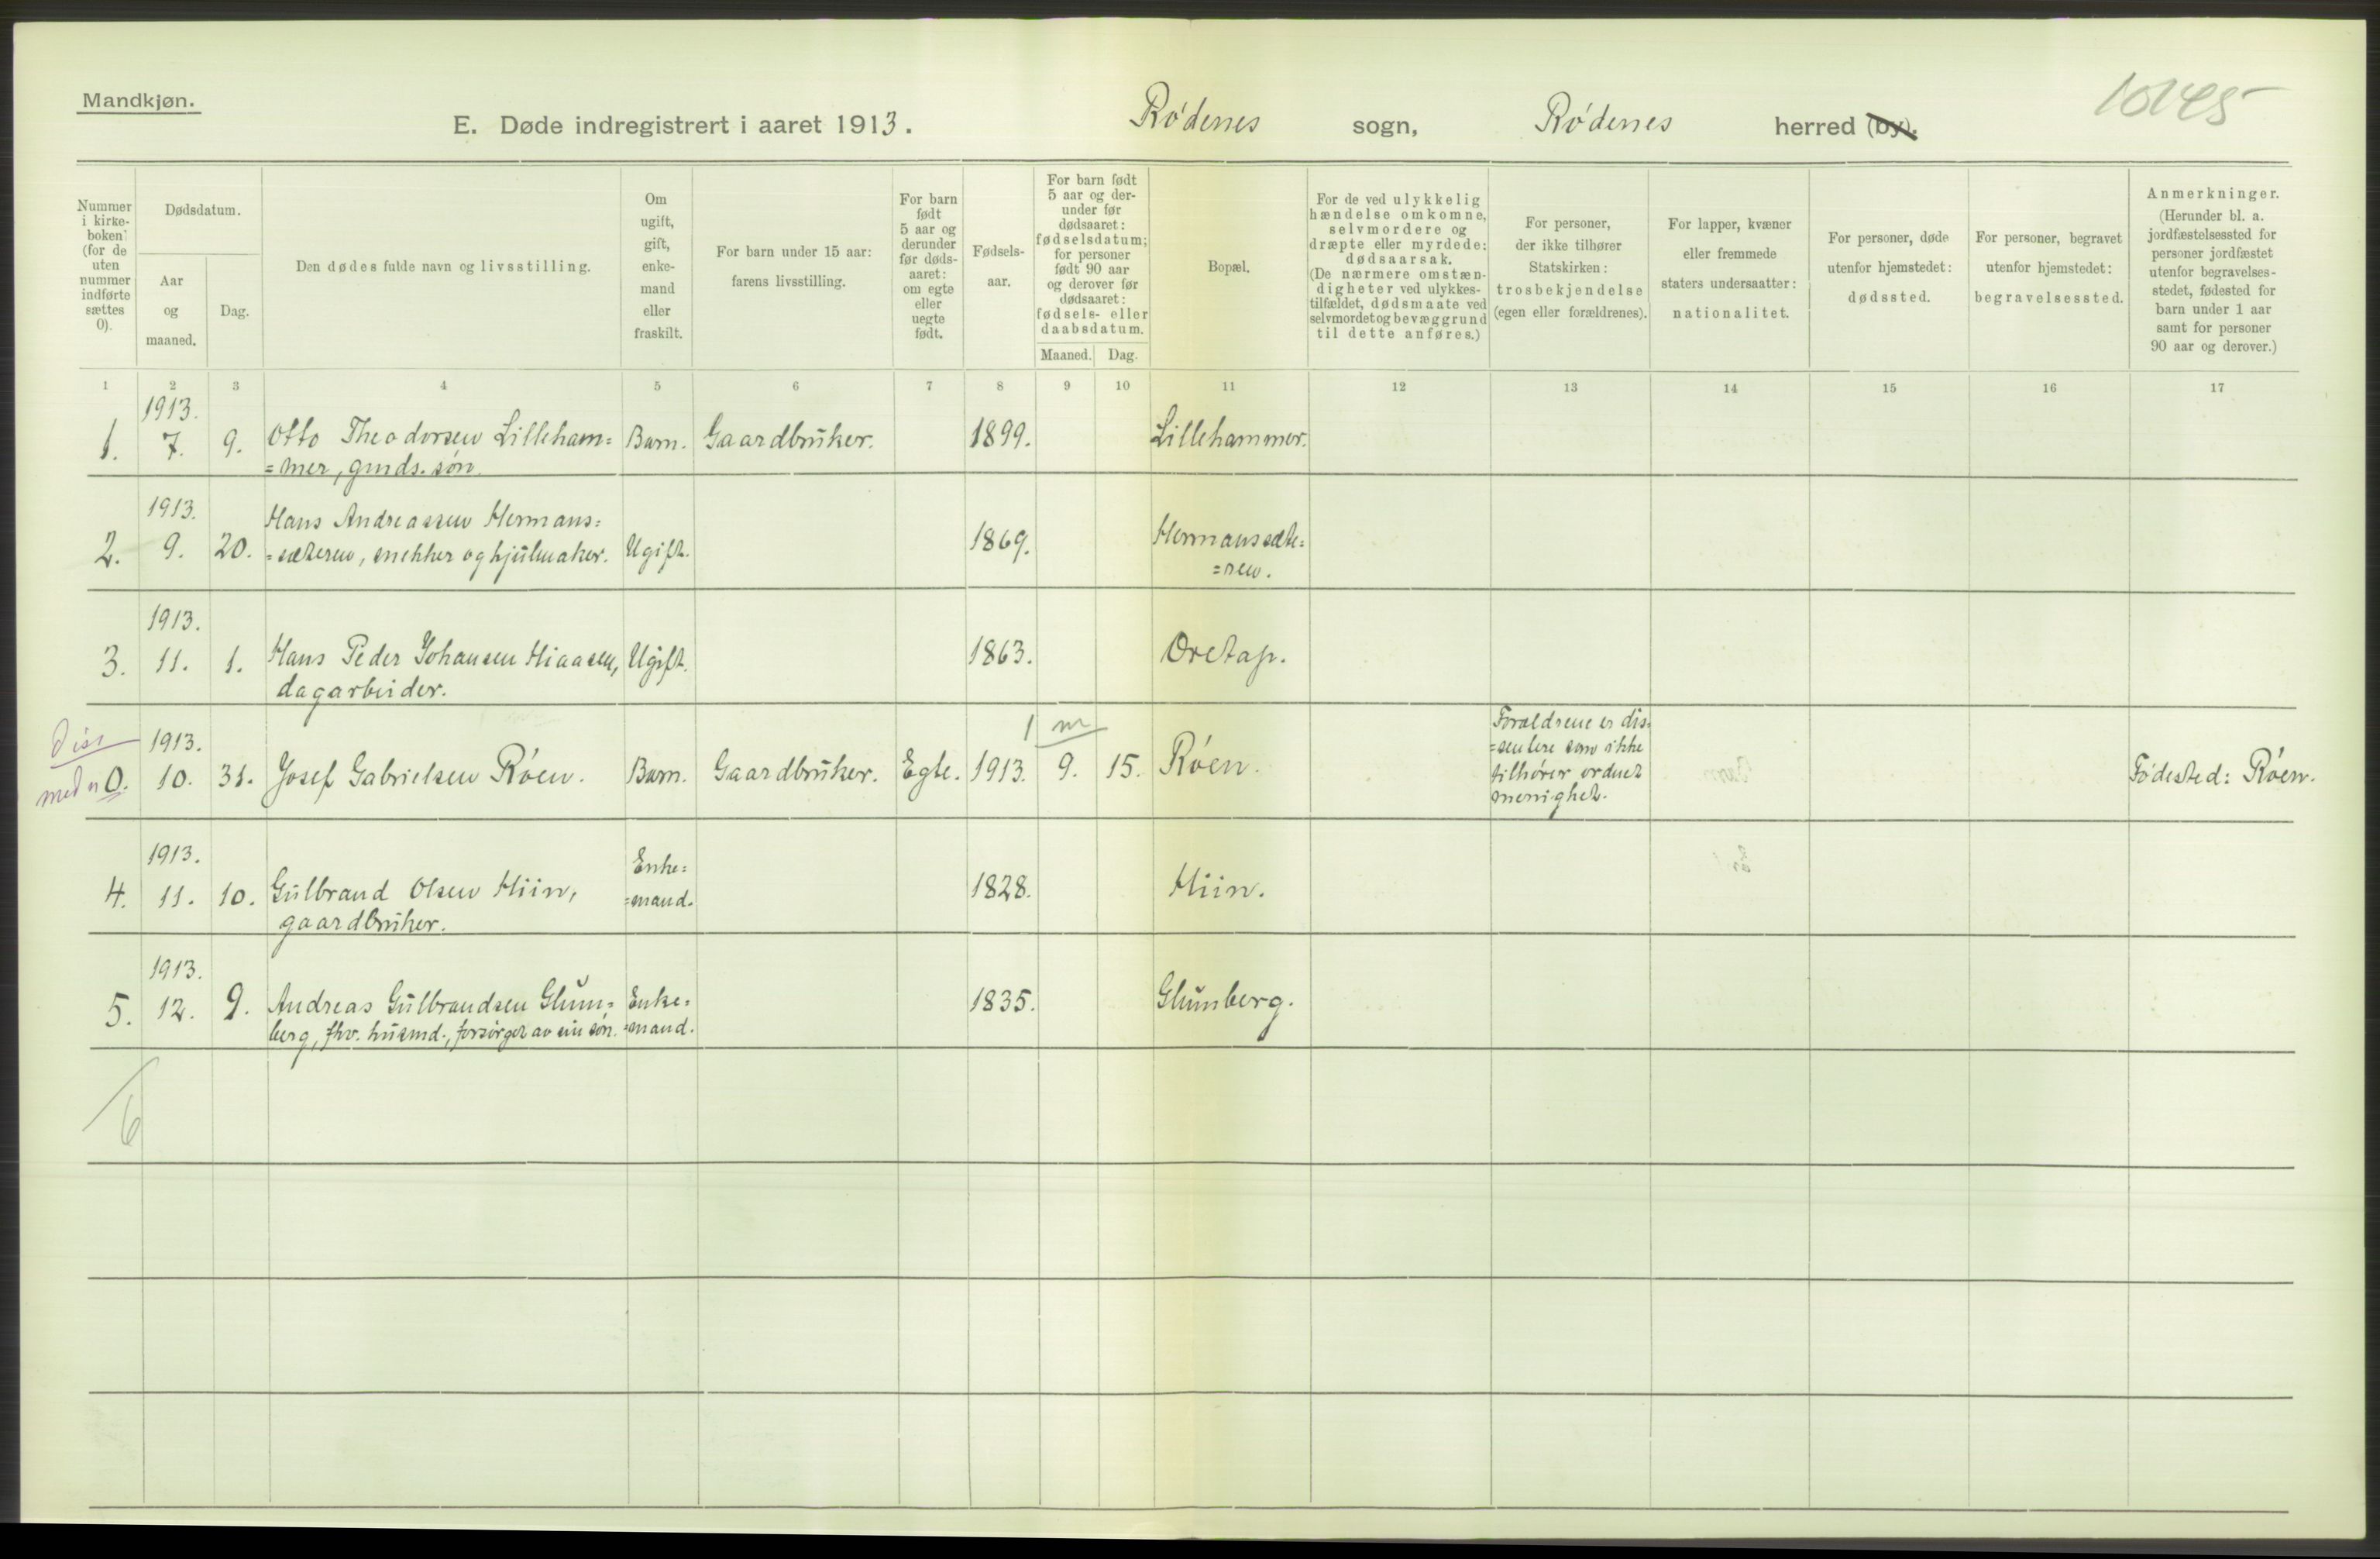 Mandkjøn.
E. Døde indregistrert i aaret 1913. Rødenes sogn, Rødenes herred (by).
10145
Nummer i kirkeboken: (for de uten nummer indførte sættes 0).
Dødsdatum.
Aar og maaned.
Dag.
Den dødes fulde navn og livsstilling.
Om ugift, gift, enkemand eller fraskilt.
For barn under 15 aar: farens livsstilling.
For barn født 5 aar og derunder før dødsaaret: om egte eller uegte født.
Fødselsaar.
For barn født 5 aar og derunder før dødsaaret: fødselsdatum; for personer født 90 aar og derover før dødsaaret: fødsels- eller daabsdatum.
Maaned. Dag.
Bopæl.
For de ved ulykkelig hændelse omkomne, selvmordere og dræpte eller myrdede: dødsaarsak. (De nærmere omstændigheter ved ulykkestilfældet, dødsmaate ved selvmordet og bevæggrund til dette anføres.)
For personer, der ikke tilhører Statskirken: trosbekjendelse (egen eller forældrenes).
For lapper, kvæner eller fremmede staters undersaatter: nationalitet.
For personer, døde utenfor hjemstedet: dødssted.
For personer, begravet utenfor hjemstedet: begravelsessted.
Anmerkninger. (Herunder bl. a. jordfæstelsessted for personer jordfæstet utenfor begravelsesstedet, fødested for barn under 1 aar samt for personer 90 aar og derover.)
1 2 3 4 5 6 7 8 9 10 11 12 13 14 15 16 17
1913.
1. 7. 9. Otto Theodorsen Lilleham= Barn. Gaardbruker. 1899. Lillehammer.
=mer, gmds. søn.
1913.
Hans Andreassen Hermans=
2. 9. 20. =sæteren, snekker og hjulmaker. Ugift. 1869. Hermanssæte=
=ren.
1913.
3. 11. 1. Hans Peder Johansen Hiaasen, Ugift. 1863. Oretap.
dagarbeider.
Diss
med n
1 m
1913.
0. 10. 31. Josef Gabrielsen Røen. Barn. Gaardbruker. Egte. 1913. 9. 15. Røen.
Forældrene er dis=
=sentere som ikke
tilhører ordnet
menighet.
Fødested: Røen.
1913.
4. 11. 10. Gulbrand Olsen Hiin, Enke=
=mand. 1828. Hiin.
gaardbruker.
1913.
5. 12. 9. Andreas Gulbrandsen Glum= Enke= 1835. Glumberg.
berg, fhv. husmd., forsørget av sin søn. =mand.
6